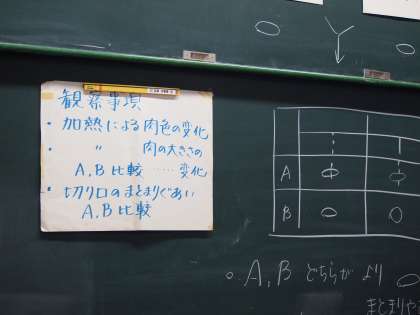 観察事項
・加熱による肉色の変化
・ 〃 肉の大きさの
A,B比較 ‥‥ 変化
・切り口のまとまりぐあい
A,B比較
A
B
○A,B どちらが より
まとまりや